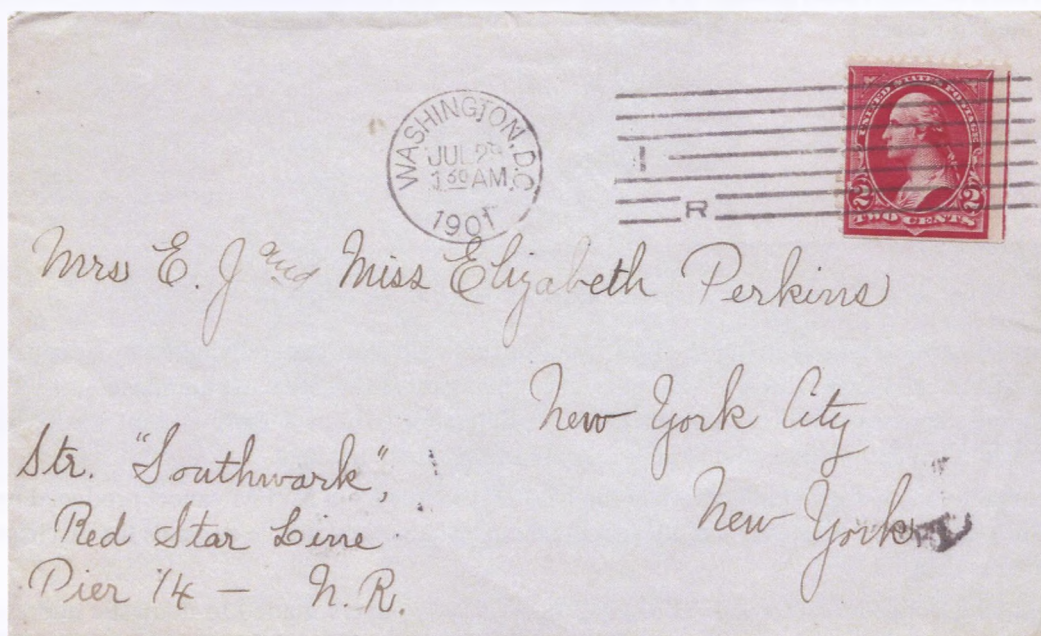 WASHINGTON, D.C.
JUL 2
1 30 AM
1901
1
R
UNITED STATES POSTAGE
2 2
TWO CENTS
Mrs E. J and Miss Elizabeth Perkins
New York City
New York
Str. "Southwark",
Red Star Line
Pier 14 — N.R.